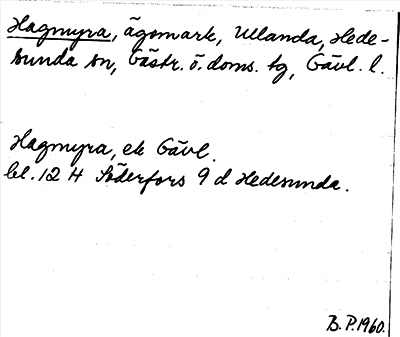 Hagmyra, ägomark, Ullanda, Hede-
sunda sn, Gästr. ö. doms. tg, Gävl. l.
Hagmyra, ek Gävl.
bl. 12 H Söderfors 9 d Hedesunda.
B. P. 1960.